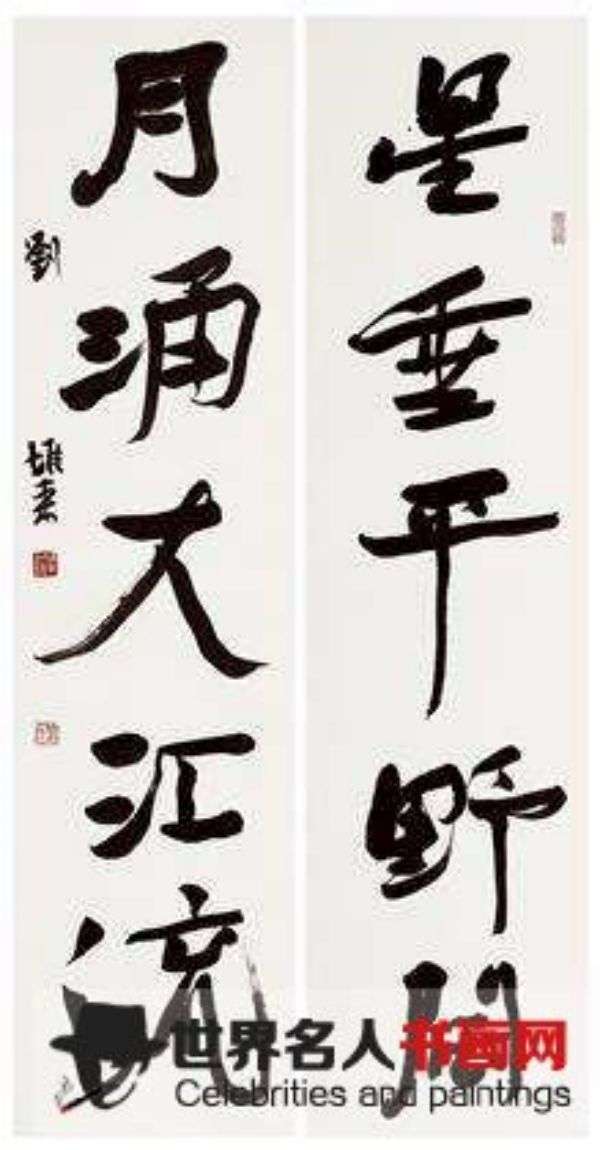 星垂平野
月涌大江流
劉
世界名人书画网
Celebrities and paintings